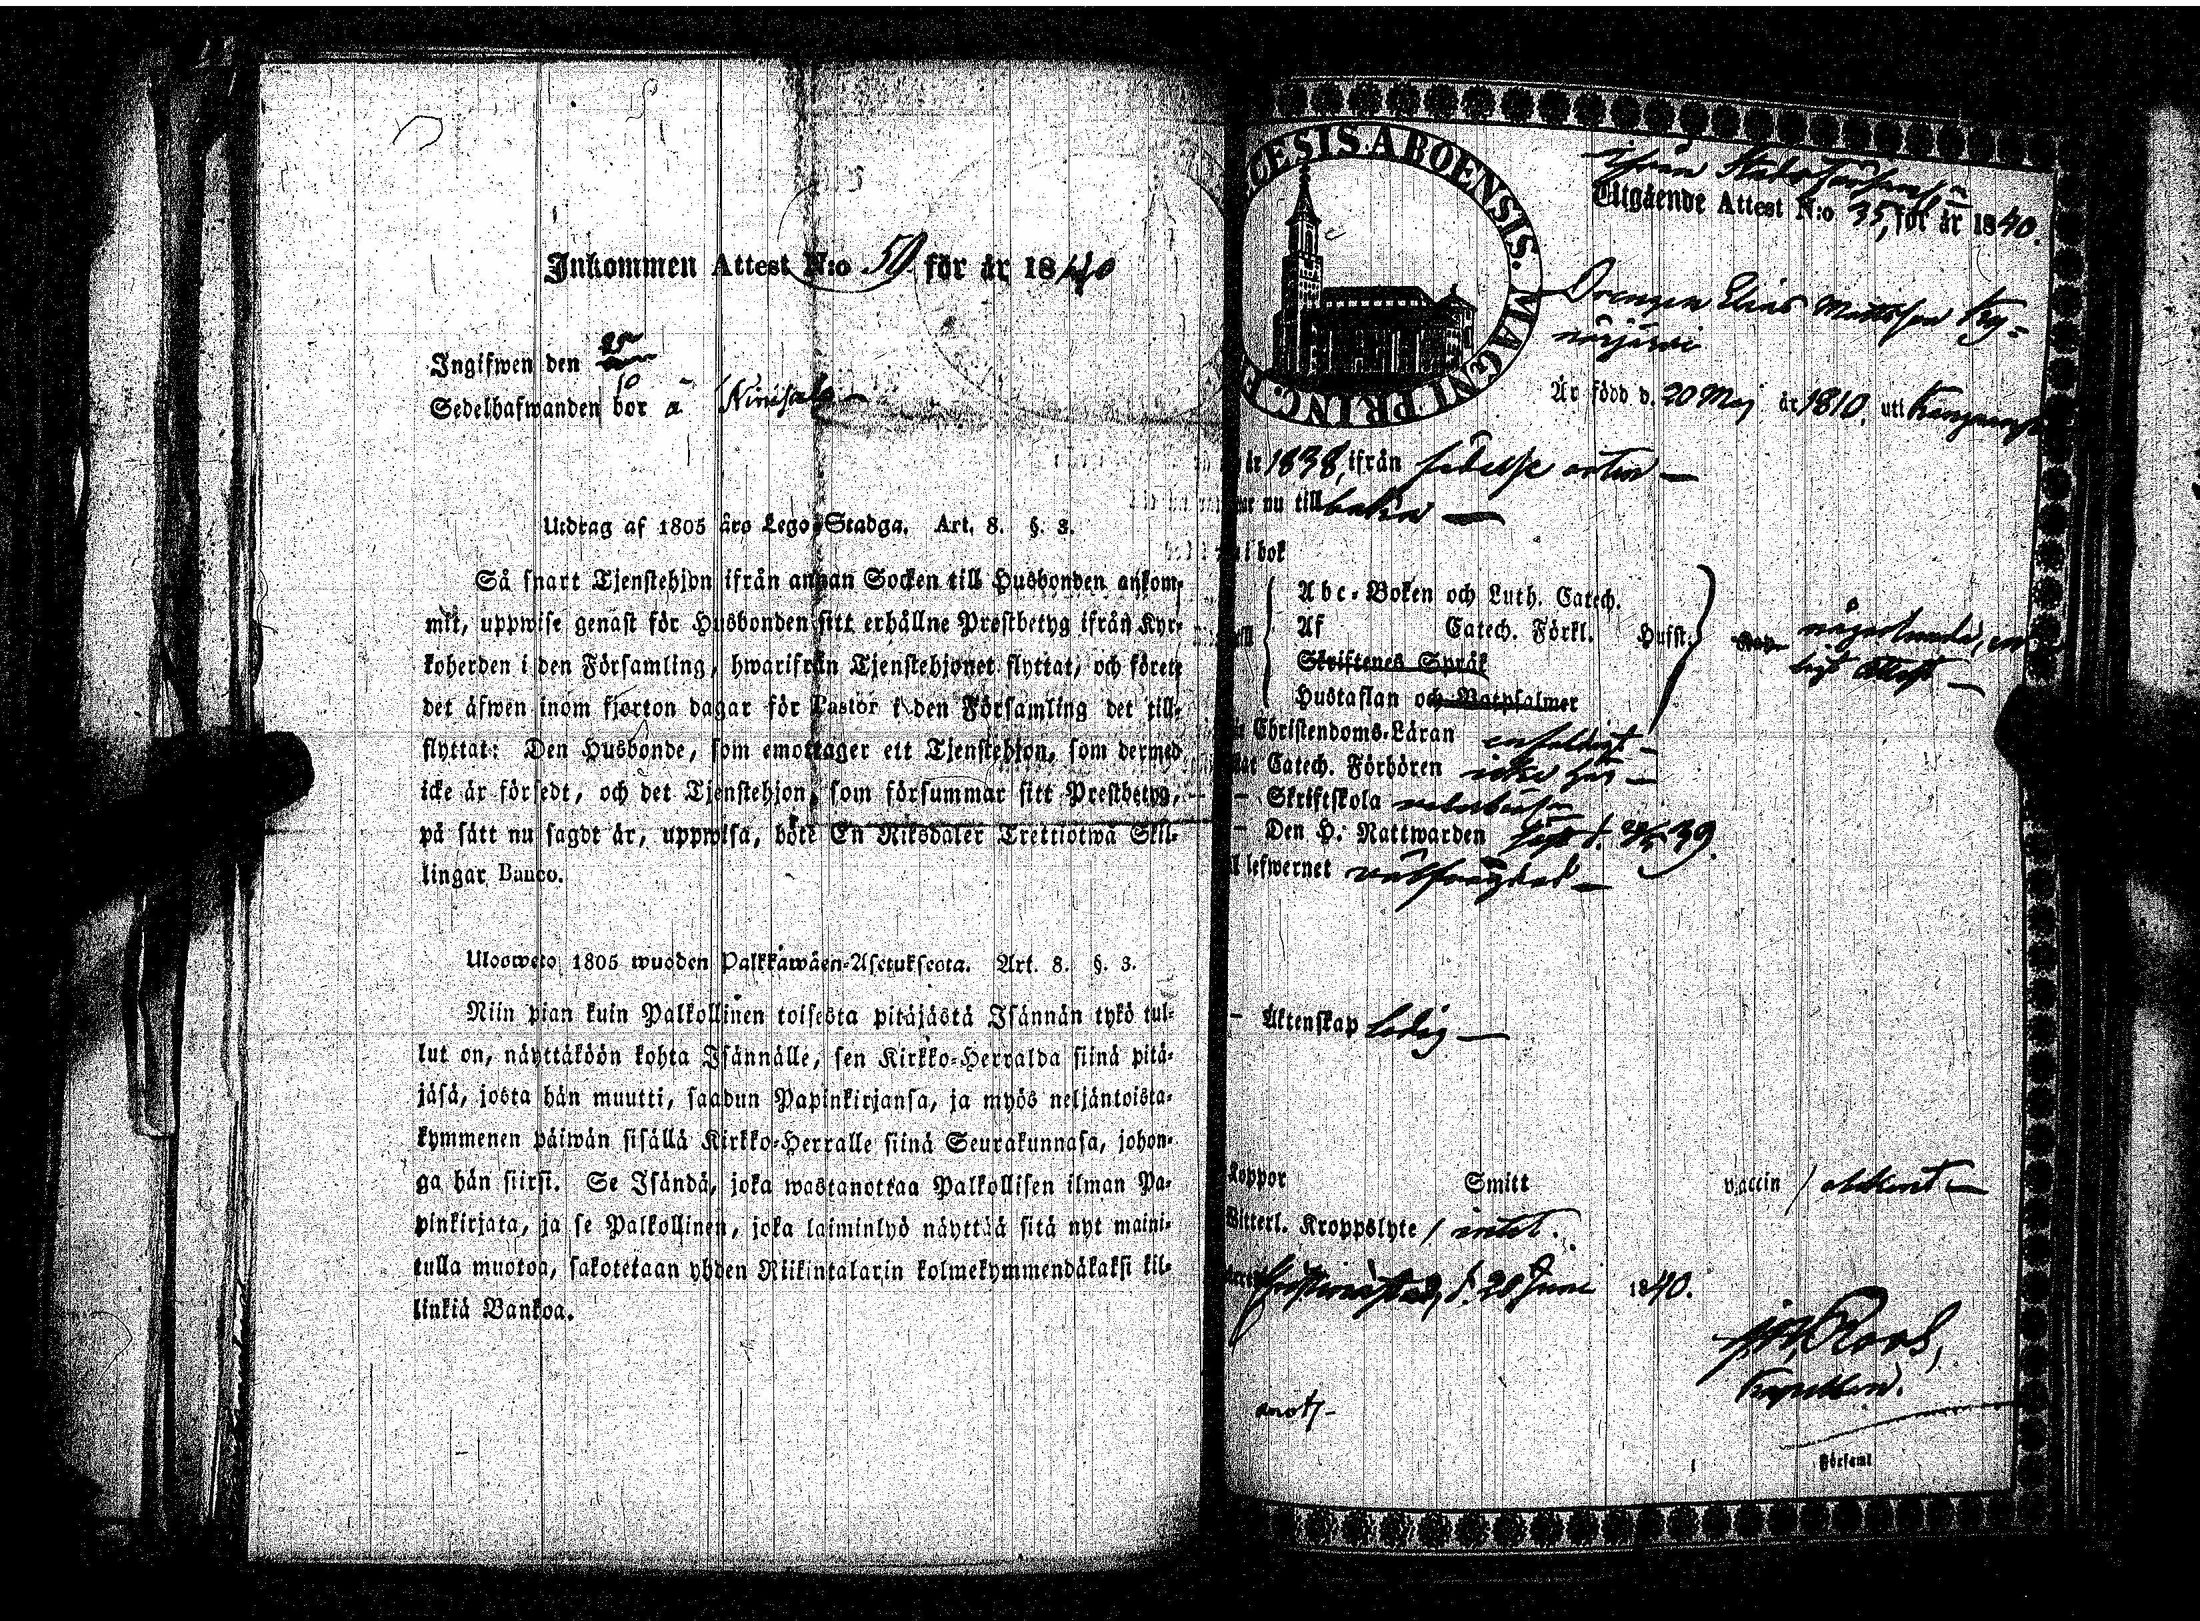 Inkommen Attest N:o 50 för år 1840
Ingifwen den 25
Sedelhafwanden bor å
Utdrag af 1805 års Lego-Stadga. Art. 8. §. 3.
Så snart Tjenstehjon ifrån annan Socken till Husbonden ankom-
mit, uppwise genast för Husbonden sitt erhållne Prestbetyg ifrån Kyr-
koherden i den Församling, hwarifrån Tjenstehjonet flyttat, och förete
det äfwen inom fjorton dagar för Pastor i den Församling det till-
flyttat: Den Husbonde, som emottager ett Tjenstehjon, som dermed
icke är försedt, och det Tjenstehjon, som försummar sitt Prestbetyg,
på sätt nu sagdt är, uppwisa, böte En Riksdaler Trettiotwå Skil-
lingar Banco.
Uloswete 1805 wuoden Palkkawäen-Asetuksesta. Art. 8. §. 3.
Niin pian kuin Palkollinen toisesta pitäjästä Isännän tykö tul-
lut on, näyttäköön kohta Isännälle, sen Kirkko-Herralda siinä pitä-
jäsä, josta hän muutti, saadun Papinkirjansa, ja myös neljäntoista-
kymmenen päiwän sisällä Kirkko-Herralle siinä Seurakunnasa, johon-
ga hän siirsi. Se Isändä, joka wastanottaa Palkollisen ilman Pa-
pinkirjata, ja se Palkollinen, joka laiminlyö näyttää sitä nyt maini-
tulla muotoa, sakotetaan yhden Riikintalarin kolmekymmendäkaksi kil-
linkiä Bankoa.
OESIS ABOENSIS. MAGNI PRINC. F
Utgående Attest N:o 35, för år 1840.
Drengen Elias Mattsson Ky-
närjärvi
Är född d. 20 Maj år 1810, uti
år 1838, ifrån födelse orten
nu till
i bok
Abc-Boken och Luth. Catech.
Af Catech. Förkl. Hufst.
någorlunda, en-
ligt attest
Skriftenes Språk
Hustaflan och Botpsalmer
Christendoms-Läran enfaldigt
Catech. Förhören
Skriftskola
Den H. Nattwarden 39.
lefwernet wälfrägdad
Äktenskap ledig
Koppor Smitt vaccin
Witterl. Kroppslyte / intet.
d. 28 Juni 1840.
Kapellan.
Församl